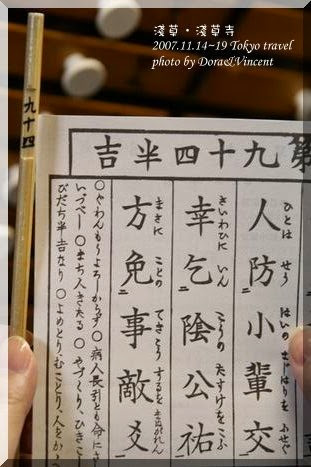 淺草・淺草寺
2007.11.14~19 Tokyo travel
photo by Dora&Vincent
九十四
第九十四半吉
人防小輩交
ひとは せう はいの まじはりを ふせぐ
幸乞陰公祐
さいわひに いん こうの たすけをこふ
方免事敵爻
まさに ことの てきこう するを
○ぐわんもうよろしからず ○病人長引とも命にさ
いづべし ○まち人きたる ○やづくり、ひきこし
びだち半吉なり ○よめとり、むことり、人をかゝ